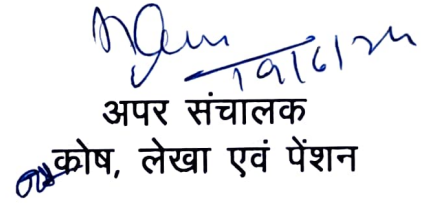 19/6/24
अपर संचालक
कोष, लेखा एवं पेंशन